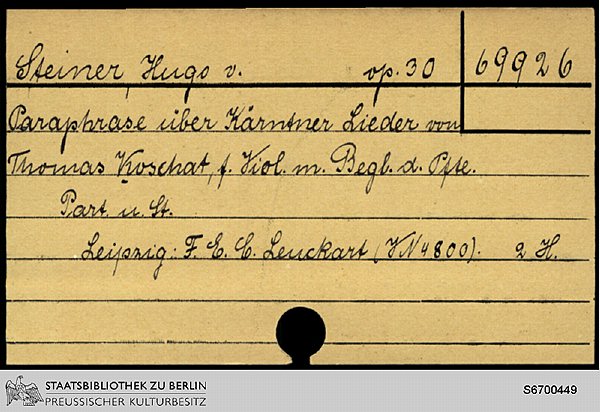 Steiner, Hugo v. op. 30 69926
Paraphrase über Kärntner Lieder von
Thomas Koschat, f. Viol. m. Begl. d. Pfte.
Part. u. St.
Leipzig: F. E. C. Leuckart (VN 4800). 2 H.
STAATSBIBLIOTHEK ZU BERLIN
PREUSSISCHER KULTURBESITZ
S6700449